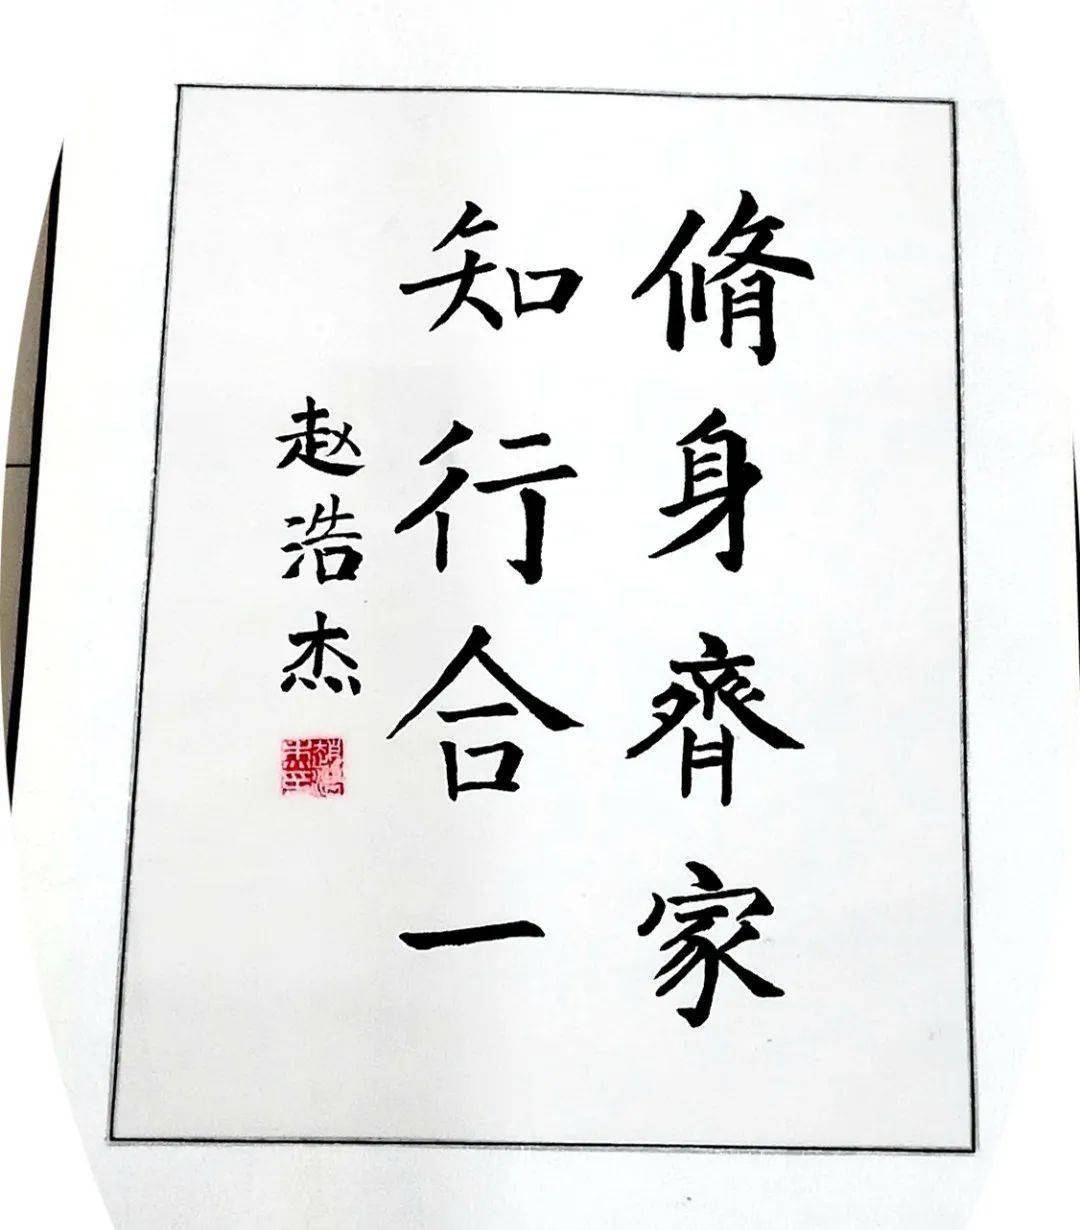 脩身齊家
知行合一
赵浩杰